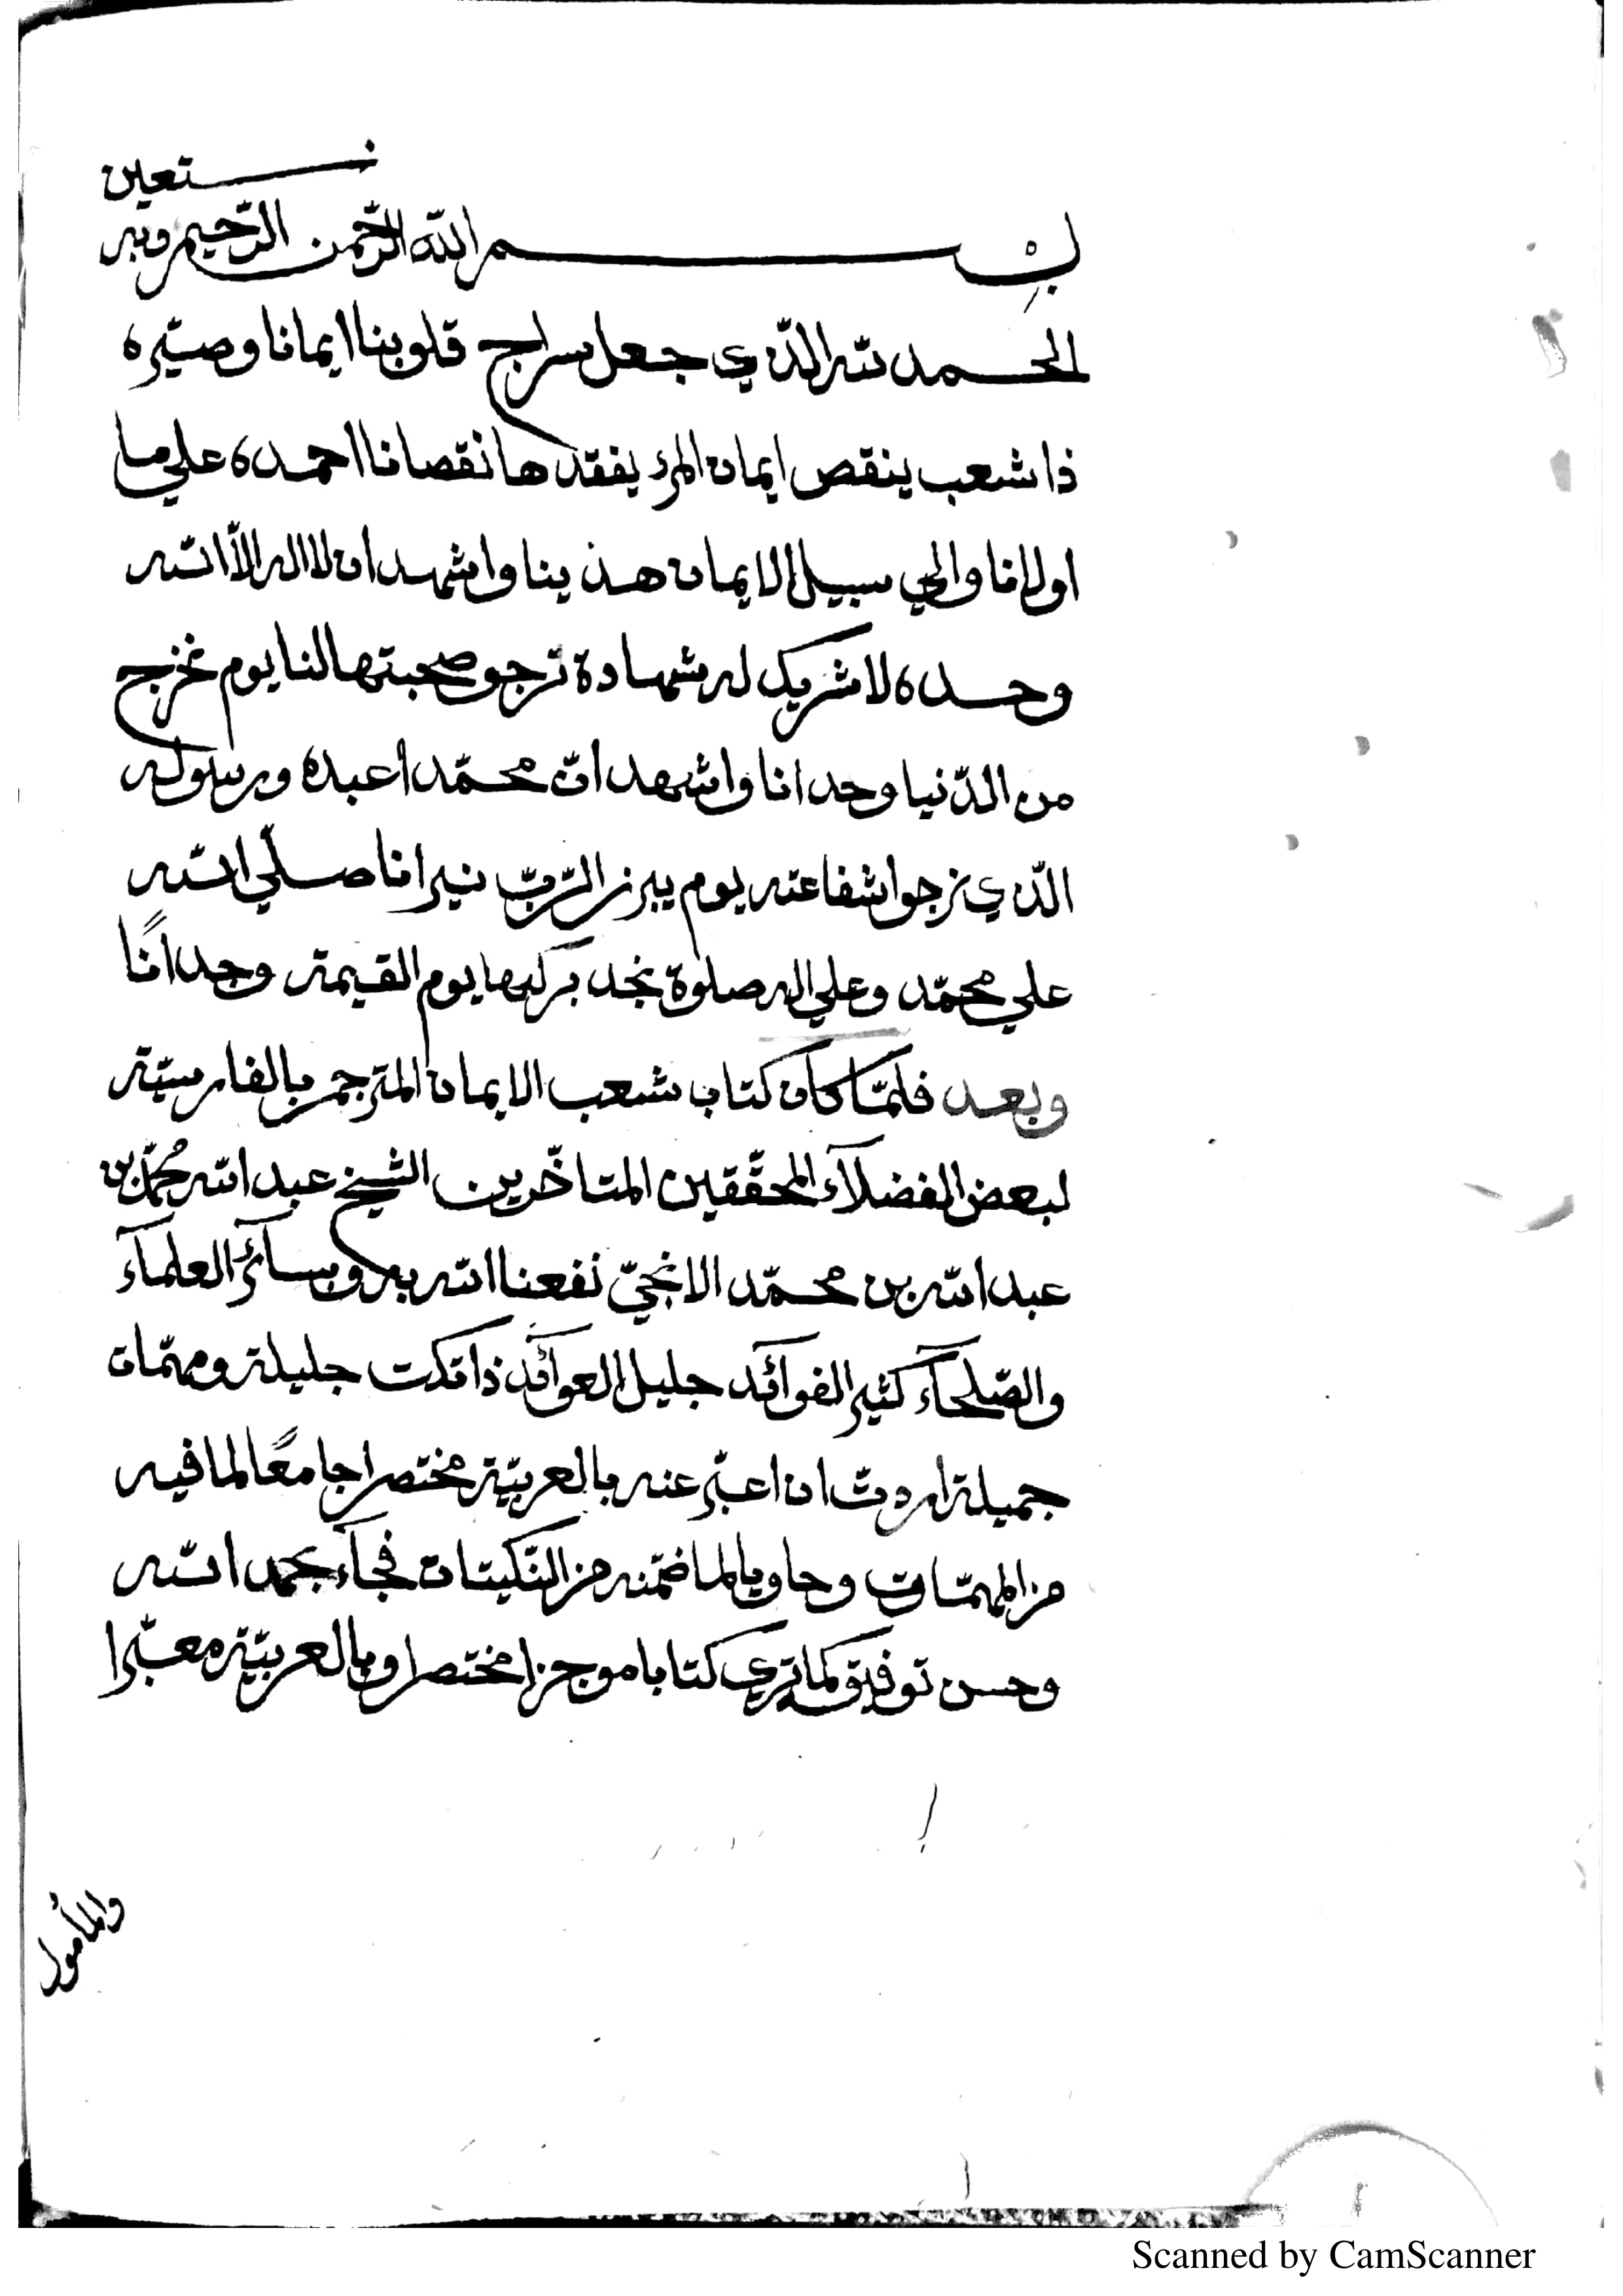 نستعين
بسم الله الرّحمن الرّحيم وبه
الحمد لله الّذي جعل سراج قلوبنا ايمانا وصيّره
ذا شعب ينقص ايمان المرء بفقدها نقصانا احمده علي ما
اولانا والي سبيل الايمان هدينا واشهد ان لا اله الّا الله
وحده لا شريك له شهادة نرجو صحبتها لنا يوم نخرج
من الدّنيا وحدانا واشهد انّ محمّدا عبده ورسوله
الّذي نرجوا شفاعته يوم يبرز الرّبّ نيرانا صلّي الله
علي محمّد وعلي اله صلوة نجد بركتها يوم القيمة وجدانًا
وبعد فلمّا كان كتاب شعب الايمان المترجم بالفارسيّة
لبعض الفضلآء المحقّقين المتاخّرين الشيخ عبد الله محُمّد بن
عبد الله بن محمّد الايجيّ نفعنا الله به وبسآئر العلمآء
والصّلحآء كثير الفوآئد جليل العوآئد ذا نكت جليلة ومهمّات
جميلة اردت ان اعبّر عنه بالعربيّة مختصرا جامعًا لما فيه
من المهمّات وحاويا لما ضمّنه من النّكيتات فجآء بحمد الله
وحسن توفيقه كما تري كتابا موجزا مختصرا وبالعربيّة معبّرا
والمأمول
Scanned by CamScanner